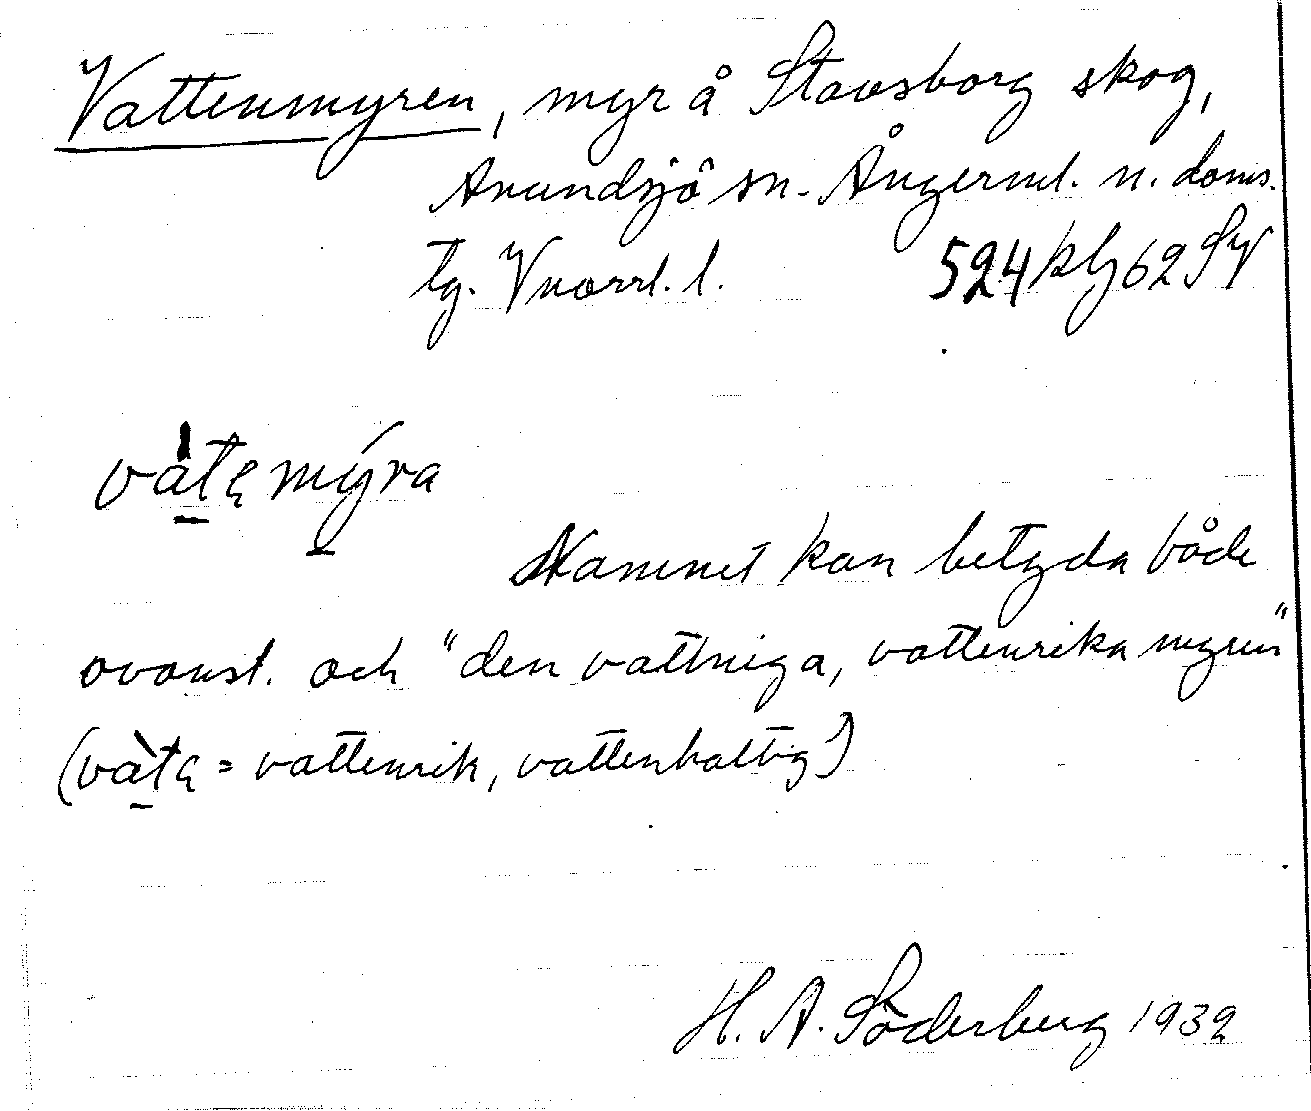 Vattenmyren, myr å Stavsborg skog,
Anundsjö sn. Ångerml. n. doms.
tg. Vnorrl. l. 524 klg 62 SV
vàtęmýra
Namnet kan betyda både
ovanst. och "den vattniga, vattenrika myren"
(vàtę = vattenrik, vattenhaltig)
H. A. Söderberg 1932